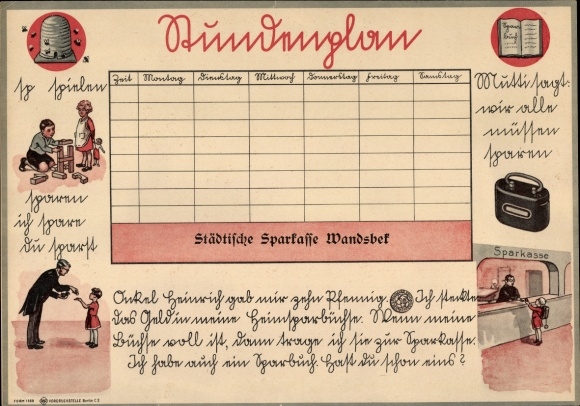 Stundenplan
Spar
Buch
sp spielen
sparen
ich spare
du sparst
Zeit Montag Dienstag Mittwoch Donnerstag Freitag Samstag
Städtische Sparkasse Wandsbek
Mutti sagt:
wir alle
müssen
sparen
Sparkasse
Onkel Heinrich gab mir zehn Pfennig. Ich stecke
das Geld in meine Heimsparbüchse. Wenn meine
Büchse voll ist, dann trage ich sie zur Sparkasse.
Ich habe auch ein Sparbuch. Hast du schon eins?